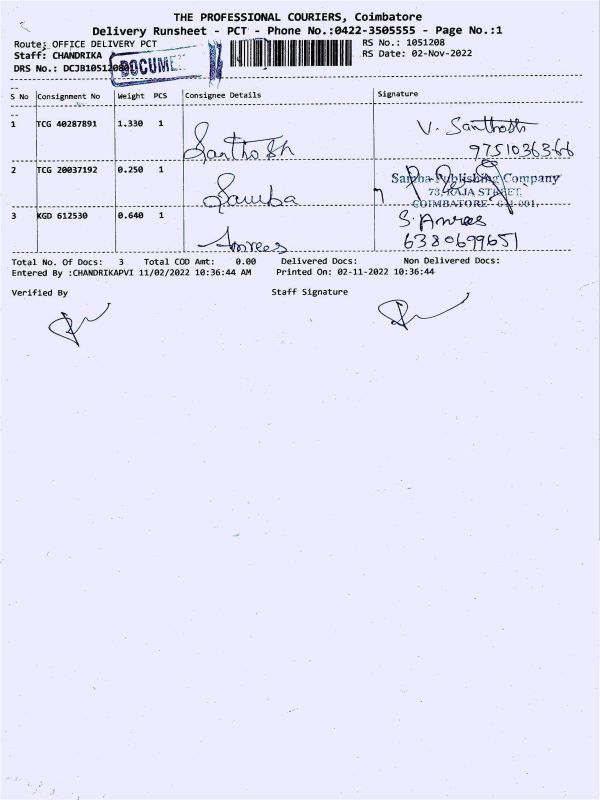 THE PROFESSIONAL COURIERS, Coimbatore
Delivery Runsheet - PCT - Phone No.:0422-3505555 - Page No.:1
Route: OFFICE DELIVERY PCT
RS No.: 1051208
Staff: CHANDRIKA
RS Date: 02-Nov-2022
DRS No.: DCJB1051208
DOCUME
S No Consignment No Weight PCS Consignee Details Signature
1 TCG 40287891 1.330 1 Santhosh V. Santhosh
9751036366
2 TCG 20037192 0.250 1 Samba Samba Publishing Company
73, RAJA STREET,
COIMBATORE - 641 001.
3 KGD 612530 0.640 1 Anrees S. Anrees
6380699651
Total No. Of Docs: 3 Total COD Amt: 0.00 Delivered Docs: Non Delivered Docs:
Entered By :CHANDRIKAPVI 11/02/2022 10:36:44 AM Printed On: 02-11-2022 10:36:44
Verified By Staff Signature